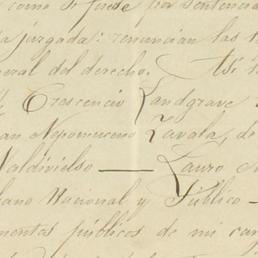 como si fuese por sentencia
juzgada: renuncian las
general del derecho. Así
Crescencio Landgrave
Juan Nepomuceno Zavala, de
Valdivielso — Lauro
Nacional y Público —
mentos públicos de mi car